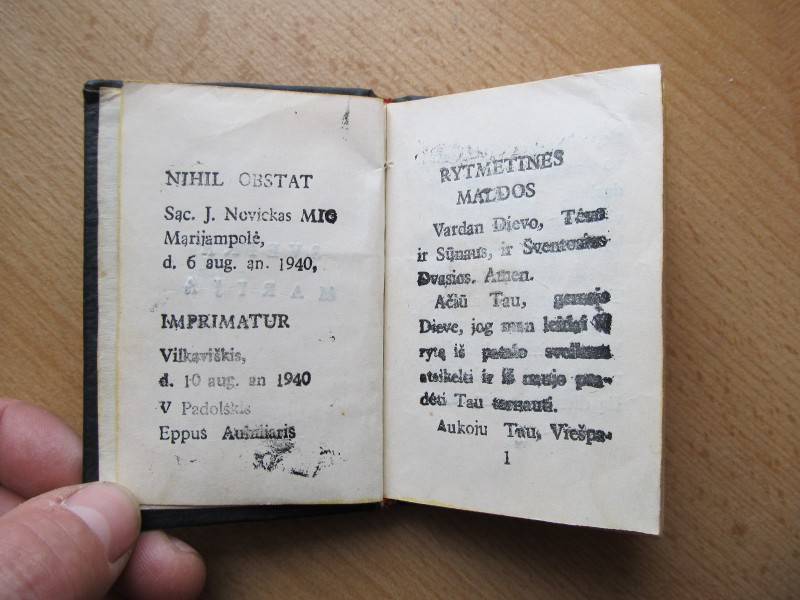 NIHIL OBSTAT
Sąc. J. Novickas MIC
Marijampolė,
d. 6 aug. an. 1940,
IMPRIMATUR
Vilkaviškis,
d. 10 aug. an 1940
V Padolskis
Eppus Auxiliaris
RYTMETINĖS
MALDOS
Vardan Dievo, Tėvo
ir Sūnaus, ir Šventosios
Dvasios. Amen.
Ačiū Tau, gerasis
Dieve, jog man leidai šį
rytą iš patalo sveikam
atsikelti ir iš naujo pra-
dėti Tau tarnauti.
Aukoju Tau, Viešpa-
1